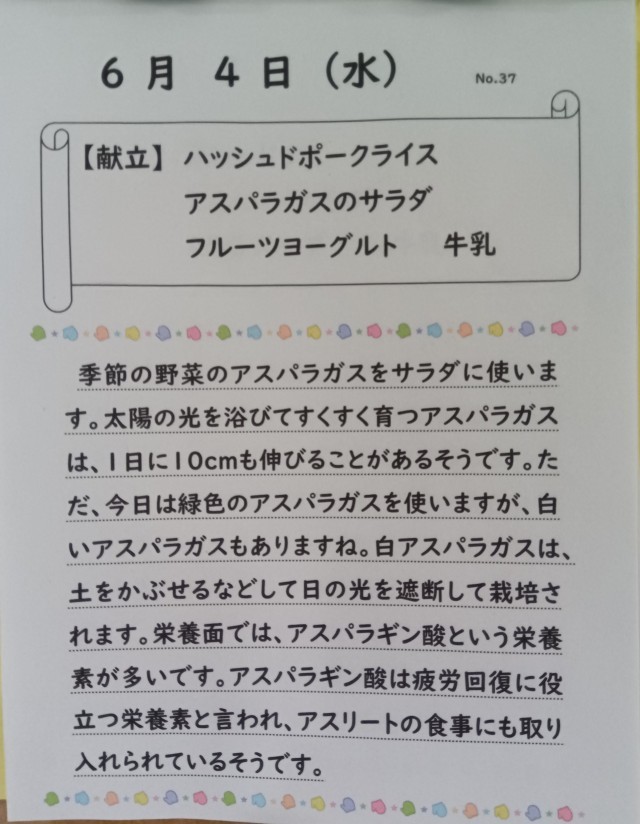 6月 4日(水)
No.37
【献立】 ハッシュドポークライス
アスパラガスのサラダ
フルーツヨーグルト 牛乳
季節の野菜のアスパラガスをサラダに使いま
す。太陽の光を浴びてすくすく育つアスパラガス
は、1日に10cmも伸びることがあるそうです。た
だ、今日は緑色のアスパラガスを使いますが、白
いアスパラガスもありますね。白アスパラガスは、
土をかぶせるなどして日の光を遮断して栽培さ
れます。栄養面では、アスパラギン酸という栄養
素が多いです。アスパラギン酸は疲労回復に役
立つ栄養素と言われ、アスリートの食事にも取り
入れられているそうです。